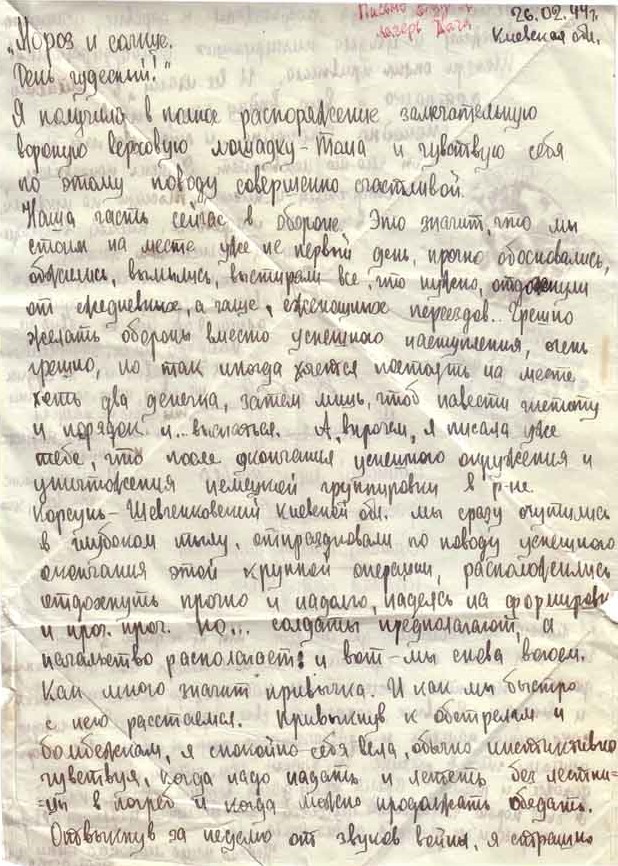 Письмо
лагерь
26.02.44г.
Киевская обл.
„Мороз и солнце.
День чудесный!“
Я получила в полное распоряжение замечательную
вороную верховую лошадку – Тома и чувствую себя
по этому поводу совершенно счастливой.
Наша часть сейчас в обороне. Это значит, что мы
стоим на месте уже не первый день, прочно обосновались,
обжились, вымылись, выстирали все, что нужно, отдохнули
от ежедневных, а чаще, еженощных переездов. Грешно
желать обороны вместо успешного наступления, очень
грешно, но так иногда хочется постоять на месте
хоть два денечка, затем лишь, чтоб навести чистоту
и порядок и.. выспаться. А, впрочем, я писала уже
тебе, что после окончания успешного окружения и
уничтожения немецкой группировки в р-не
Корсунь-Шевченковский Киевской обл. мы сразу очутились
в глубоком тылу, отпраздновали по поводу успешного
окончания этой крупной операции, расположились
отдохнуть прочно и надолго, надеясь на формировк
и проч. проч. Но... солдаты предполагают, а
начальство располагает: и вот – мы снова воюем.
Как много значит привычка. И как мы быстро
с нею расстаемся. Привыкнув к обстрелам и
бомбежкам, я спокойно себя вела, обычно инстинктивно
чувствуя, когда надо падать и лететь без лестни=
=цы в погреб и когда можно продолжать обедать.
Отвыкнув за неделю от звуков войны, я страшно